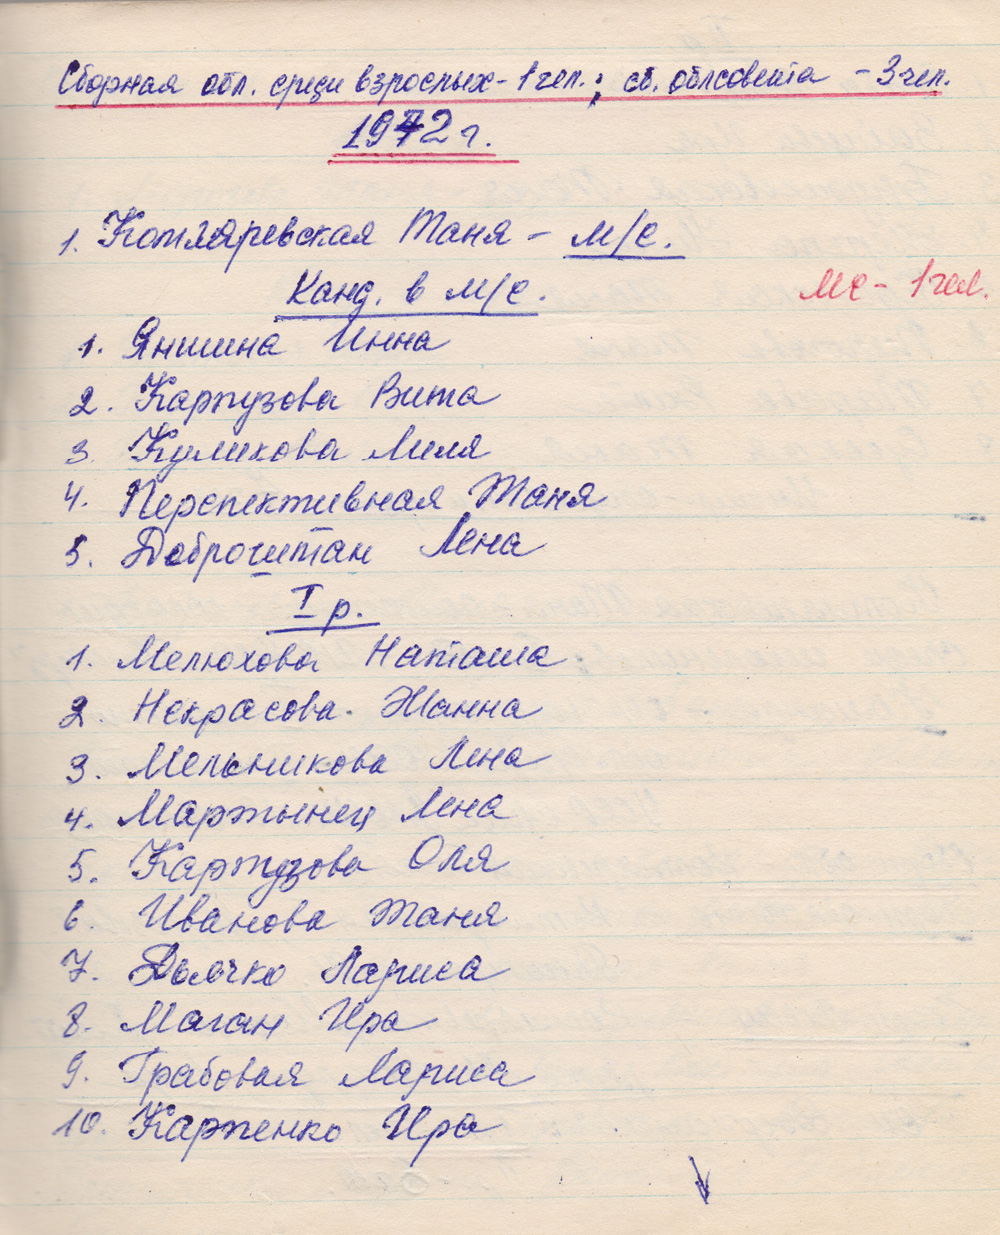 Сборная обл. среди взрослых - 1 чел.; сб. облсовета - 3 чел.
1972 г.
1. Котляревская Таня - м/с.
Канд. в м/с.
МС - 1 чел.
1. Яншина Инна
2. Карпузова Вита
3. Куликова Лиля
4. Перспективная Таня
5. Доброштан Лена
I р.
1. Мелюхова Наташа
2. Некрасова Жанна
3. Мельникова Лена
4. Мартынец Лена
5. Карпузова Оля
6 Иванова Таня
7. Дьячко Лариса
8. Маган Ира
9. Грабовая Лариса
10. Карпенко Ира